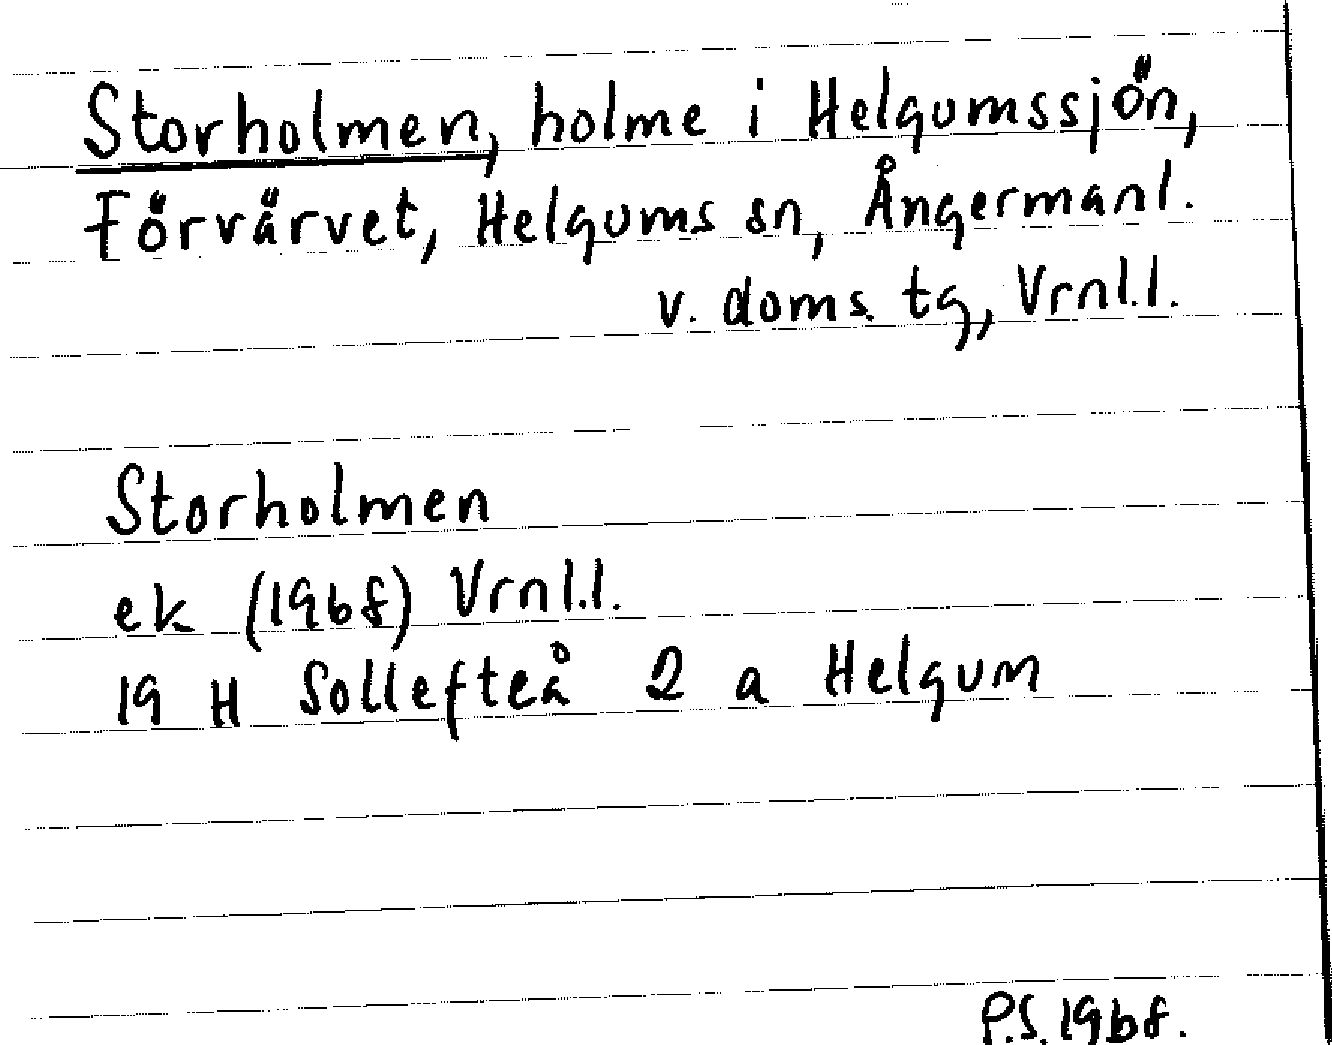 Storholmen, holme i Helgumssjön,
Förvärvet, Helgums sn, Ångermanl.
v. doms. tg, Vrnl.l.
Storholmen
ek (1968) Vrnl.l.
19 H Sollefteå 2 a Helgum
P.S. 1968.